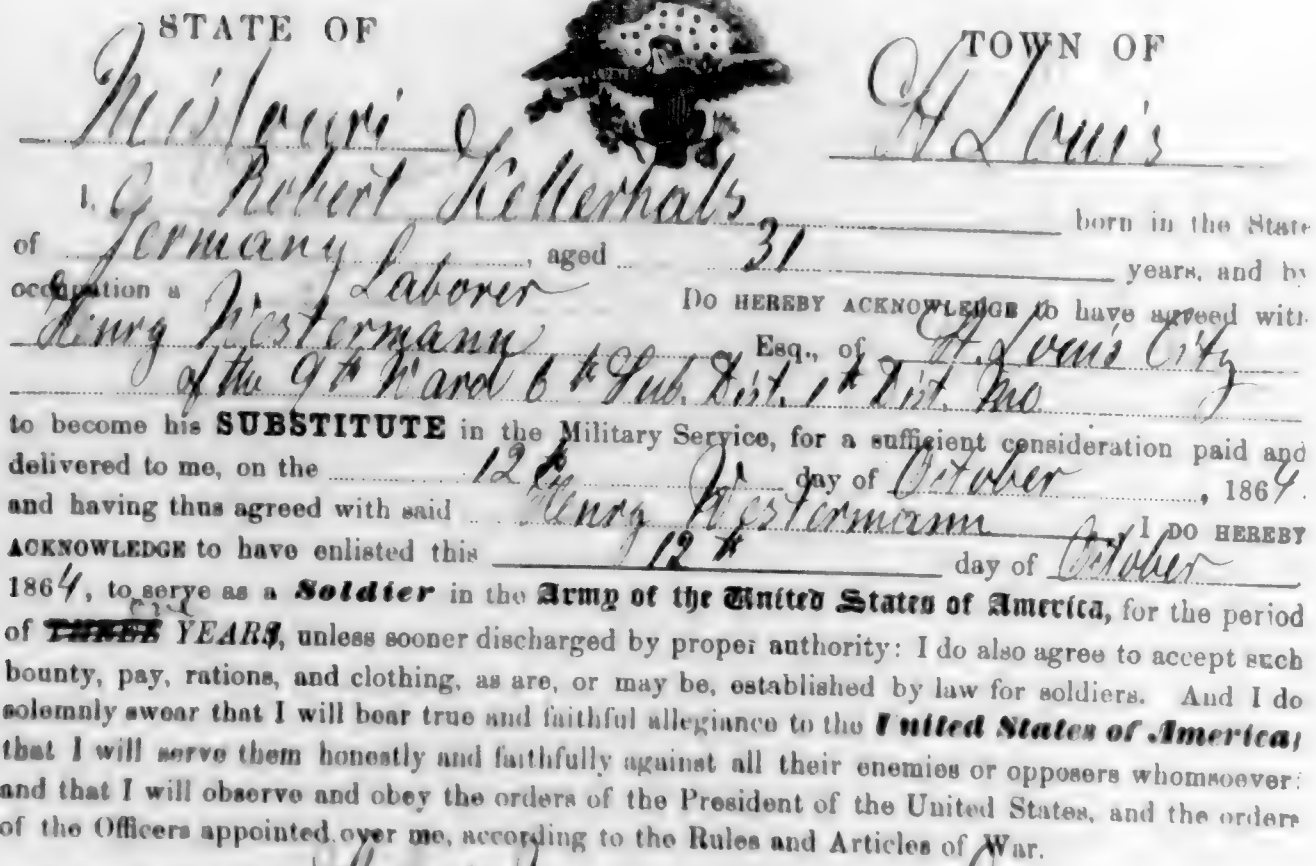 STATE OF
TOWN OF
Missouri
St Louis
I, Robert Kellerhals born in the State
of Germany, aged 31 years, and by
occupation a Laborer Do HEREBY ACKNOWLEDGE to have agreed with
Henry Westermann Esq., of St. Louis City
of the 9th Ward 6th Sub. Dist. 1st Dist. Mo.
to become his SUBSTITUTE in the Military Service, for a sufficient consideration paid and
delivered to me, on the 12th day of October, 1864.
and having thus agreed with said Henry Westermann I DO HEREBY
ACKNOWLEDGE to have enlisted this 12th day of October
1864, to serve as a Soldier in the Army of the United States of America, for the period
of THREE YEARS, unless sooner discharged by proper authority: I do also agree to accept such
bounty, pay, rations, and clothing, as are, or may be, established by law for soldiers. And I do
solemnly swear that I will bear true and faithful allegiance to the United States of America;
that I will serve them honestly and faithfully against all their enemies or opposers whomsoever:
and that I will observe and obey the orders of the President of the United States, and the orders
of the Officers appointed over me, according to the Rules and Articles of War.